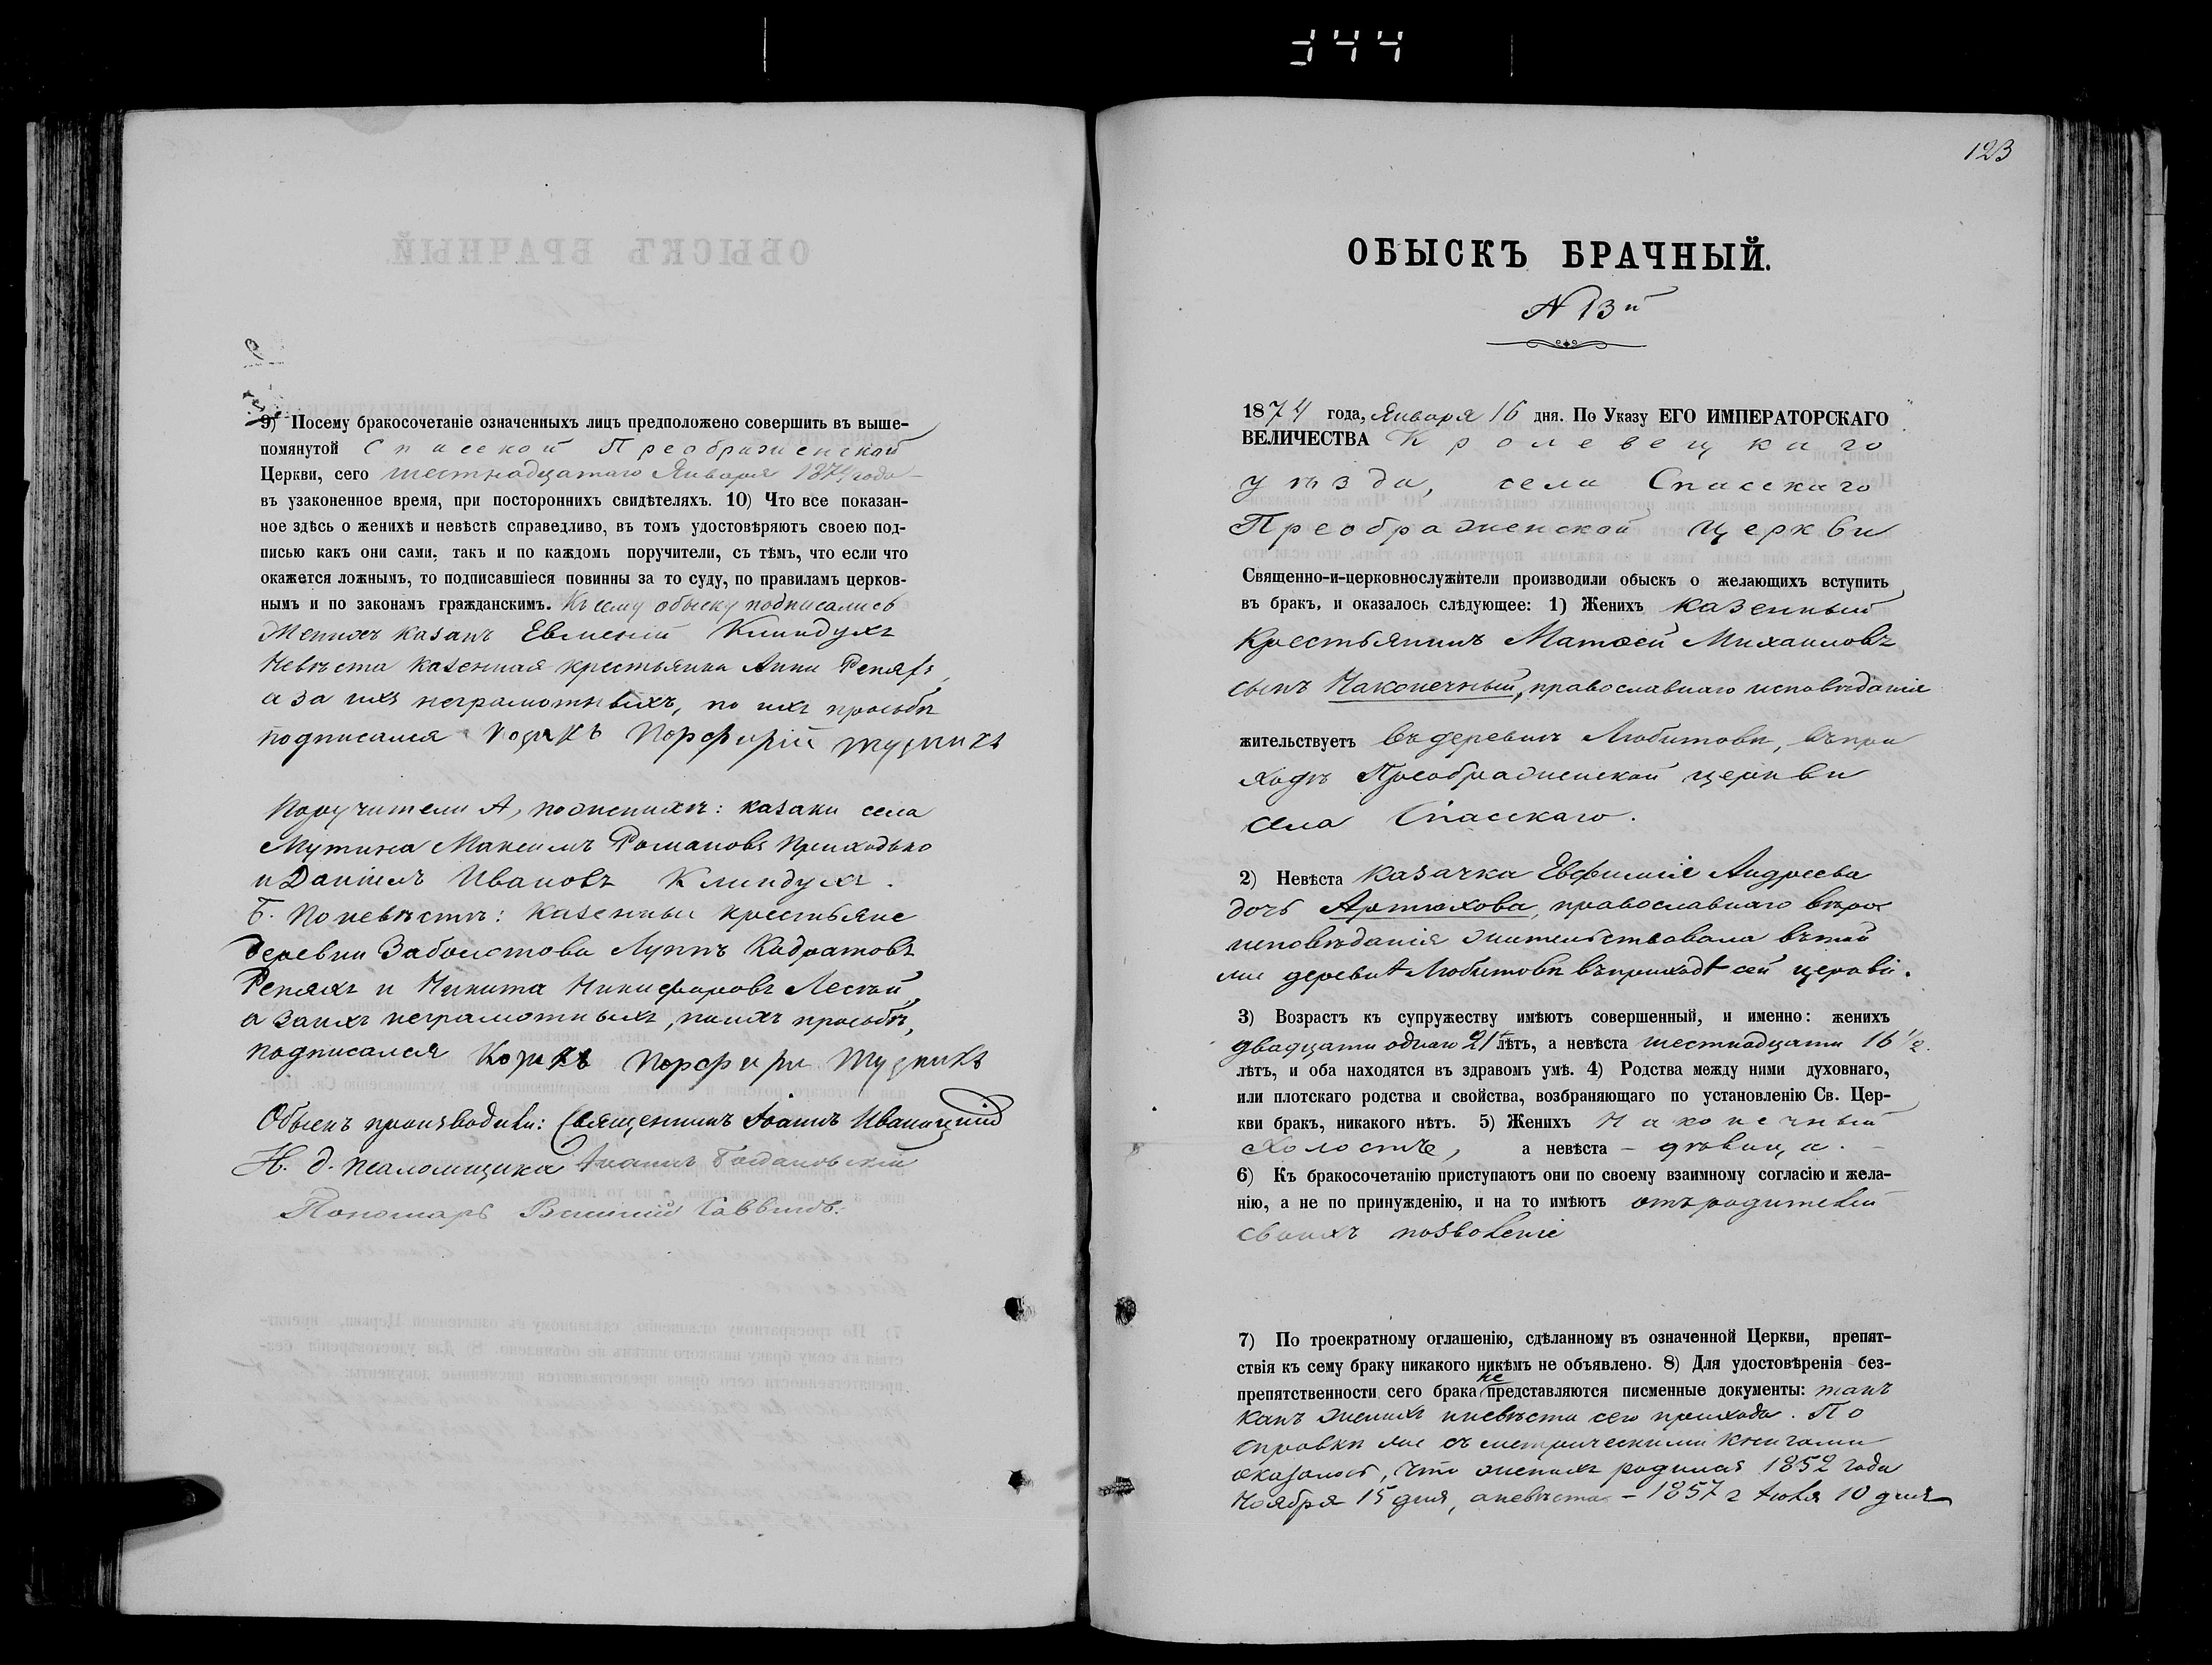 344
9) Посему бракосочетаніе означенныхъ лицъ предположено совершить въ выше-
помянутой Спаской Преображенской
Церкви, сего шестнадцатаго Января 1874 года
въ узаконенное время, при постороннихъ свидѣтеляхъ. 10) Что все показан-
ное здѣсь о женихѣ и невѣстѣ справедливо, въ томъ удостовѣряютъ своею под-
писью какъ они сами, такъ и по каждомъ поручители, съ тѣмъ, что если что
окажется ложнымъ, то подписавшіеся повинны за то суду, по правиламъ церков-
нымъ и по законамъ гражданскимъ. Къ сему обыску подписались
Женихъ казакъ Евмений Клиндухъ
Невѣста казенная крестьянка Анна Репяхъ
а за ихъ неграмотныхъ, по ихъ просьбѣ
подписался Козакъ Порфирій
Поручители А, по женихѣ: казаки села
Мутина Максимъ Романовъ Приходько
и Даніилъ Ивановъ Клиндухъ.
Б. По невѣстѣ: казенные крестьяне
деревни Лукъ
Репяхъ и Никита Никифоровъ Лесный
а за ихъ неграмотныхъ, по ихъ просьбѣ,
подписался Козакъ Порфири
Обыскъ производили: Священникъ Іоаннъ Иваницкій
И. д. псаломщика Іоаннъ Богдановскій
Пономарь Саввичъ.
123
ОБЫСКЪ БРАЧНЫЙ.
№ 13й
1874 года, Января 16 дня. По Указу ЕГО ИМПЕРАТОРСКАГО
ВЕЛИЧЕСТВА Кролевецкаго
уѣзда, села Спасскаго
Преображенской Церкви
Священно-и-церковнослужители производили обыскъ о желающихъ вступить
въ бракъ, и оказалось слѣдующее: 1) Женихъ казенный
Крестьянинъ Матѳей Михаиловъ
сынъ Наконечный, православнаго исповѣданія
жительствуетъ въ деревнѣ Любитовѣ, въ при
ходѣ Преображенской церкви
села Спасскаго.
2) Невѣста казачка Евфимія Андреева
дочь Артюхова, православнаго вѣро
исповѣданія жительствовала въ той
же деревнѣ Любитовѣ въ приходѣ сей церкви.
3) Возрастъ къ супружеству имѣютъ совершенный, и именно: женихъ
двадцати одного 21 лѣтъ, а невѣста шестнадцати 16 1/2.
лѣтъ, и оба находятся въ здравомъ умѣ. 4) Родства между ними духовнаго,
или плотскаго родства и свойства, возбраняющаго по установленію Св. Цер-
кви бракъ, никакого нѣтъ. 5) Женихъ Наконечный
холостъ, а невѣста – дѣвица.
6) Къ бракосочетанію приступаютъ они по своему взаимному согласію и жела-
нію, а не по принужденію, и на то имѣютъ отъ родителей
своихъ позволеніе
7) По троекратному оглашенію, сдѣланному въ означенной Церкви, препят-
ствія къ сему браку никакого никѣмъ не объявлено. 8) Для удостовѣренія без-
препятственности сего брака не представляются писменные документы: такъ
какъ женихъ и невѣста сего прихода. По
справкѣ же съ метрическими книгами
оказалось, что женихъ родился 1852 года
Ноября 15 дня, а невѣста – 1857 г Іюля 10 дня